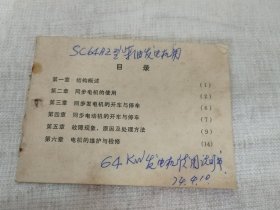 SC64A2型柴油发电机用
目 录
第一章 结构概述 (1)
第二章 同步电机的使用 (2)
第三章 同步发电机的开车与停车 (6)
第四章 同步电动机的开车与停车 (7)
第五章 故障现象、原因及处理方法 (9)
第六章 电机的维护与检修 (14)
64KW发电机使用说明书
74.9.10